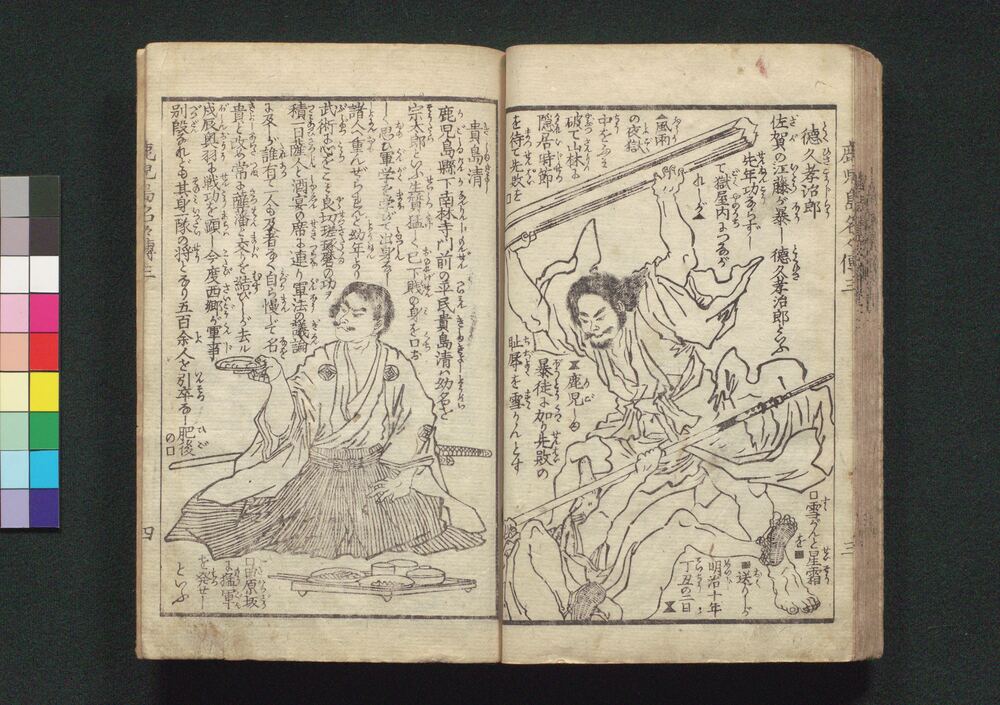 徳久孝治郎
佐賀の江藤が暴
徳久孝治郎とふ
先年功ならずし
て獄屋内につながれ
れしが▲
▲風雨
の夜獄
中をを
破て山林に
隠居時節
を待て先敗を口
鹿児しま
暴徒に加り先敗の
耻辱を雪がんとす
口雪がんと星霜
を■
■送りしが
明治十年
丁丑の二日
鹿児島名名傳三
三
貴島清
鹿児島縣下南林寺門前の平民貴島清ハ幼名を
宗太郎といふ生質猛く已下賎の身を口お
しく思ひ軍学を学びて出身なし
諸人に重んぜられんと幼年より
武術に心をこらし良切瑳琢磨の功ヲ
積一日薩人と酒宴の席に連り軍法の議論
に及ぶ誰有て一人が及者なく自ら慢じて名
貴と改め常に薩藩と交りを結びしが去ル
戊辰奥羽の戦功を顕し今度西郷が軍事
別段なれども其身一隊の将となり五百余人を引卒なし肥後
の口
口田原坂
に猛軍
を発せし
といふ
鹿児島名名傳三
四